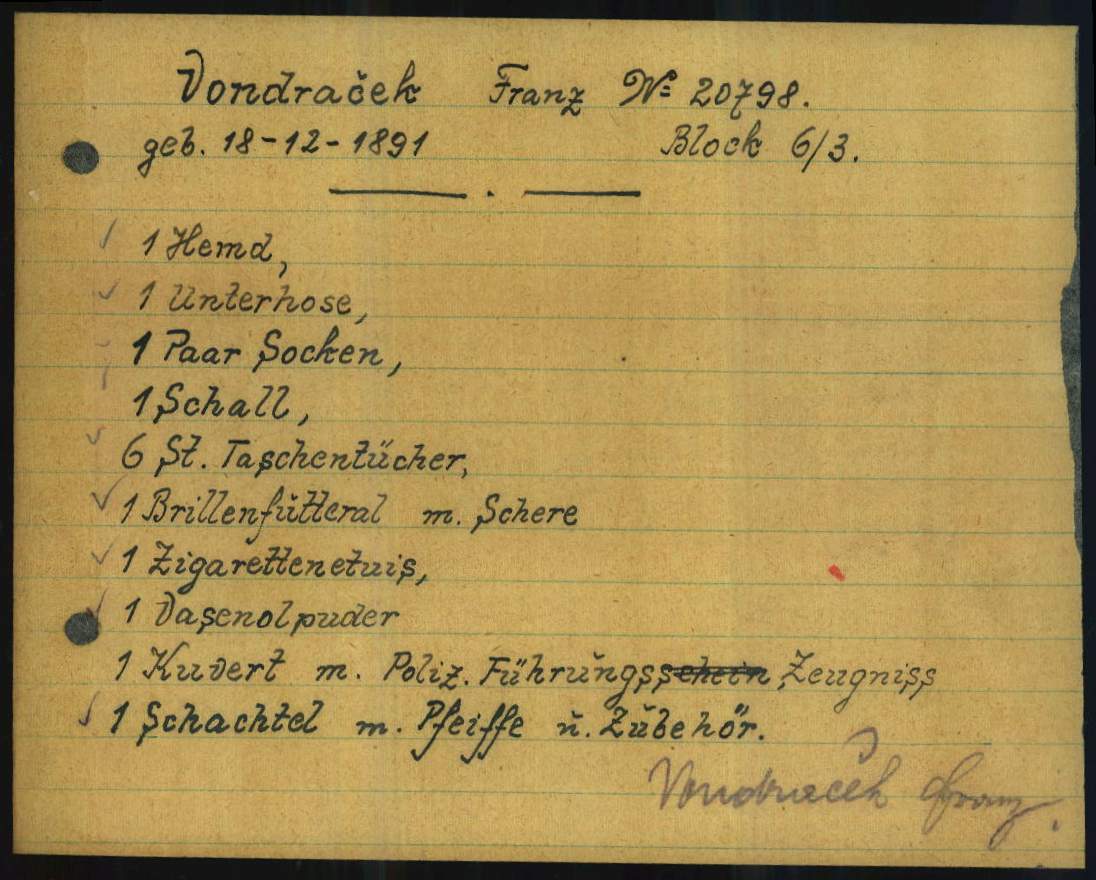 Vondraček Franz Nº 20798.
geb. 18-12-1891 Block 6/3.
1 Hemd,
1 Unterhose,
1 Paar Socken,
1 Schall,
6 St. Taschentücher,
1 Brillenfŭtteral m. Schere
1 Zigarettenetuis,
1 Vasenolpuder
1 Kuvert m. Poliz. Führŭngsschein Zeugniss
1 Schachtel m. Pfeiffe ŭ. Zŭbehör.
Vondraček Franz.